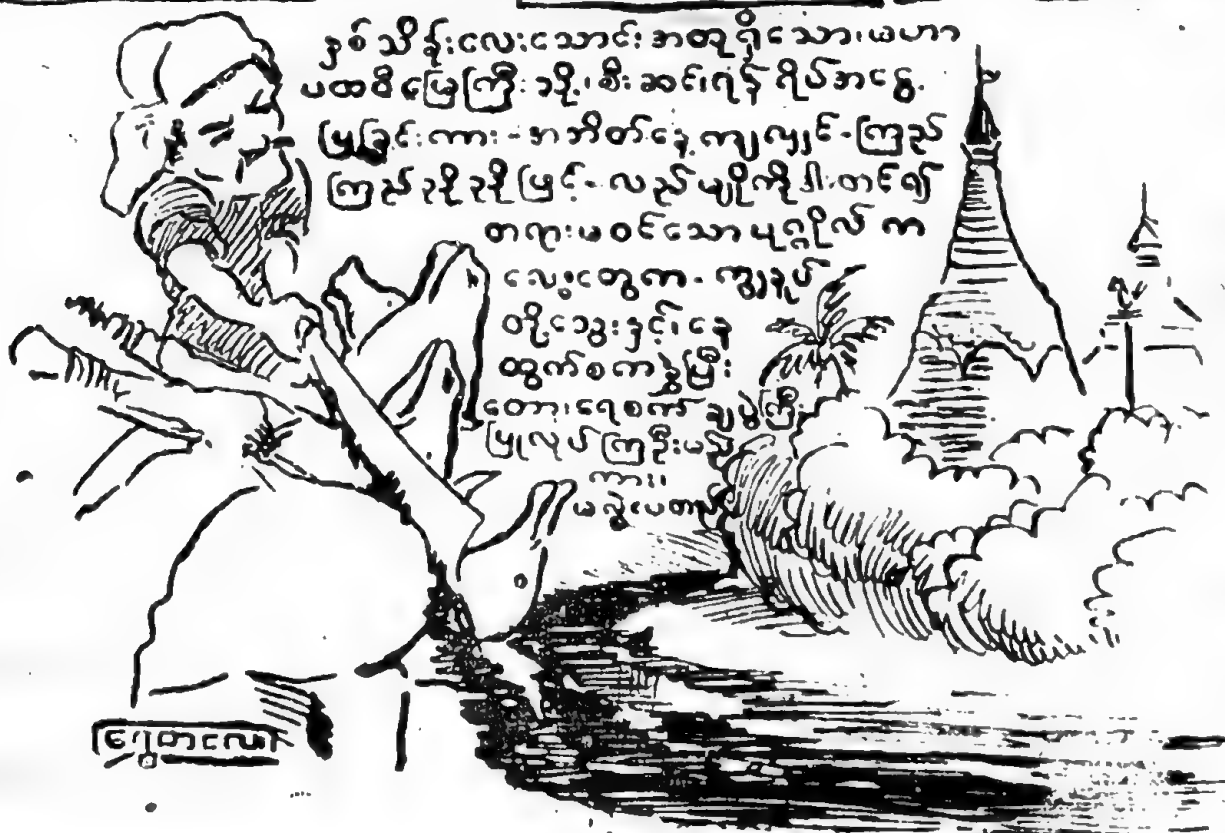 နှစ်သိန်းလေးသောင်းအထုရှိသောမဟာ
ပထဝီမြေကြီးသို့၊စီးဆင်းရန် ရိပ်အငွေ့
ပြုခြင်းကား-အဘိတ်နေ့ကျလျှင်-ကြည်
ကြည်ညိုညိုဖြင့်-လည်မျိုကိုဒါးတင်၍
တရားမဝင်သောပုဂ္ဂိုလ် က
လေးတွေက-ကျွန်ုပ်
တို့သွေးနှင့်၊နေ
ထွက်စကခွဲပြီး
တော့၊ရေစက်ချပွဲကြီး
ပြုလုပ်ကြဦးမည်
ကား၊
မလွဲပေတည်
ရွှေတလေး